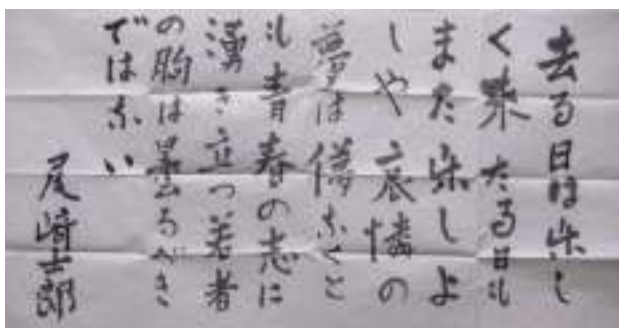 去る日は楽し
く来たる日も
また楽しよ
しや哀憐の
夢は儚なくと
も青春の志に
湧き立つ若者
の胸は曇るべき
ではない
尾崎士郎